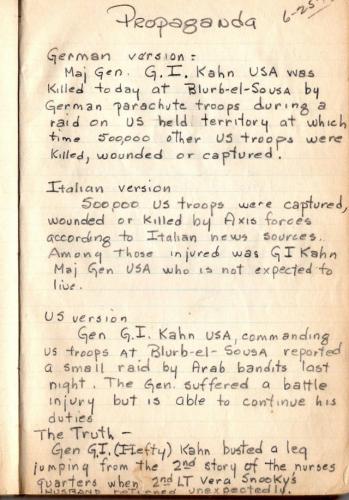 Propaganda
6-25-
German version:
Maj Gen. G.I. Kahn USA was
killed today at Blurb-el-Sousa by
German parachute troops during a
raid on US held territory at which
time 500,000 other US troops were
killed, wounded or captured.
Italian version
500,000 US troops were captured,
wounded or killed by Axis forces
according to Italian news sources.
Among those injured was GI Kahn
Maj Gen USA who is not expected to
live.
US version
Gen G.I. Kahn USA, commanding
US troops at Blurb-el-Sousa reported
a small raid by Arab bandits last
night. The Gen. suffered a battle
injury but is able to continue his
duties
The Truth -
Gen G.I. (Hefty) Kahn busted a leg
jumping from the 2nd story of the nurses
quarters when 2nd LT Vera Snooky's
husband returned unexpectedly